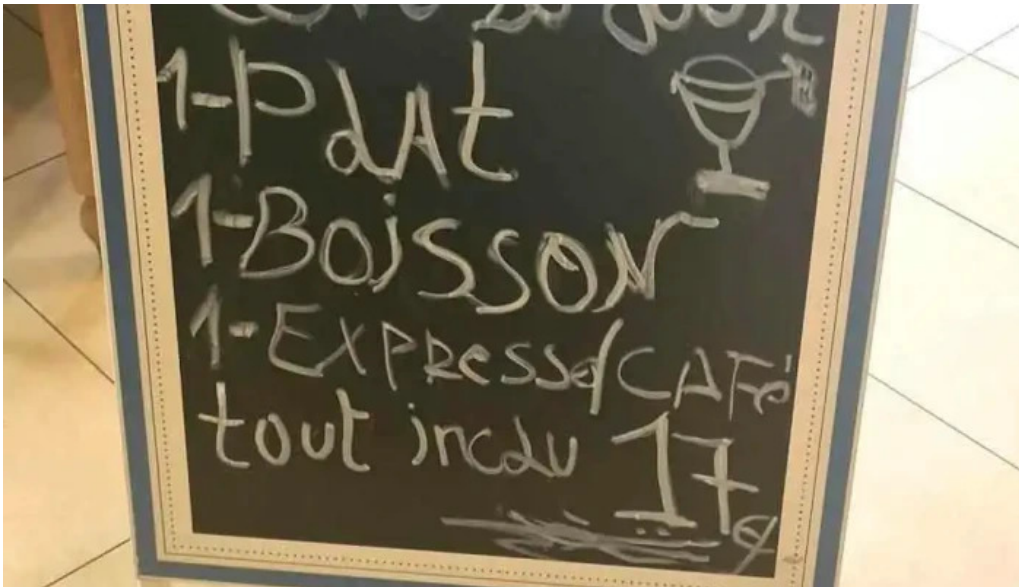 du jour
1-PlAt
1-BOiSSON
1-EXPRESSO/CAFé
tout inclu 17€